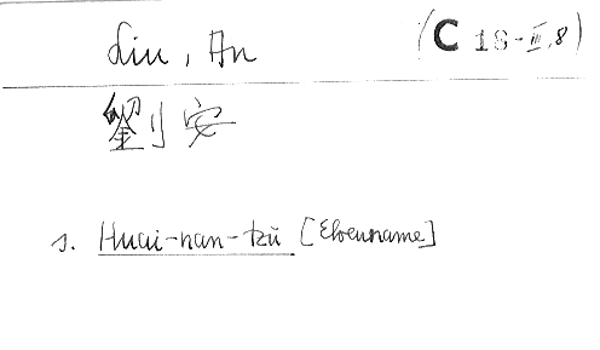 Liu, An (C 18-III,8)
劉安
s. Huai-nan-tzŭ [Ehrenname]